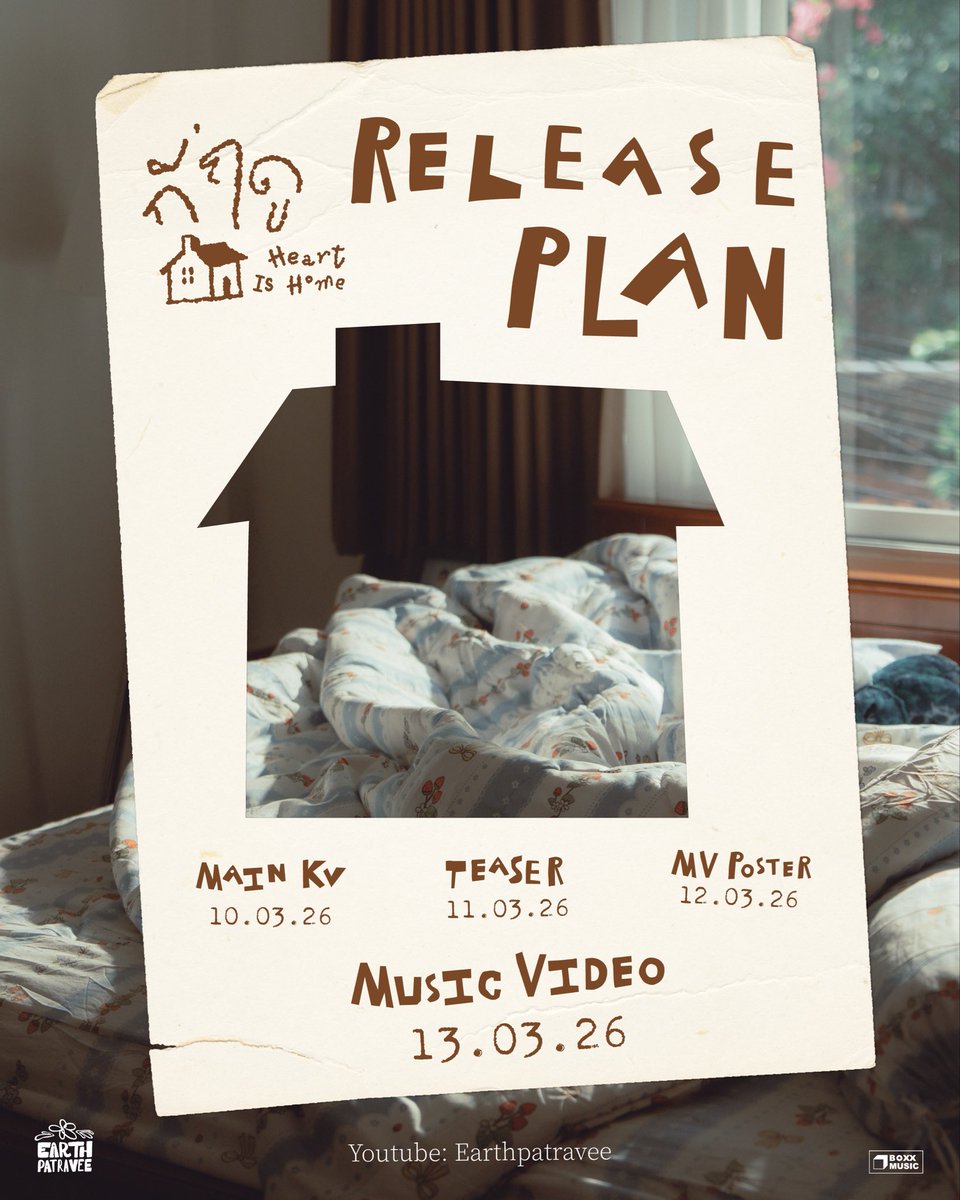 RELEASE
PLAN
Heart
Is Home
MAIN KV
10.03.26
TEASER
11.03.26
MV POSTER
12.03.26
MUSIC VIDEO
13.03.26
EARTH
PATRAVEE
Youtube: Earthpatravee
BOXX
MUSIC